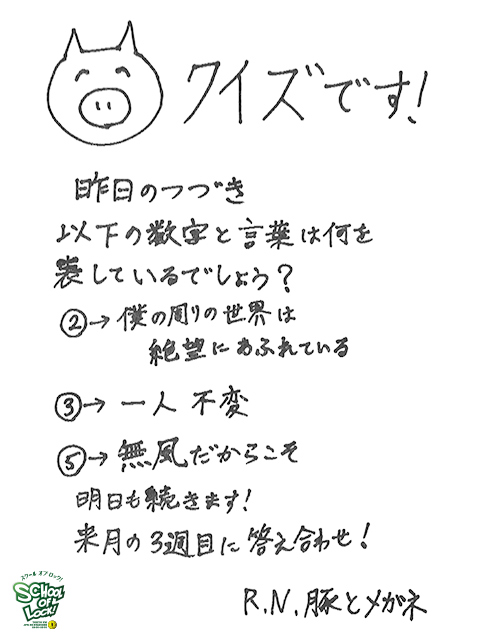 クイズです!
昨日のつづき
以下の数字と言葉は何を
表しているでしょう?
②→僕の周りの世界は
絶望にあふれている
③→一人 不変
⑤→無風だからこそ
明日も続きます!
来月の3週目に答え合わせ!
R.N.豚とメガネ
スクール オブ ロック!
SCHOOL
OF
LOCK!